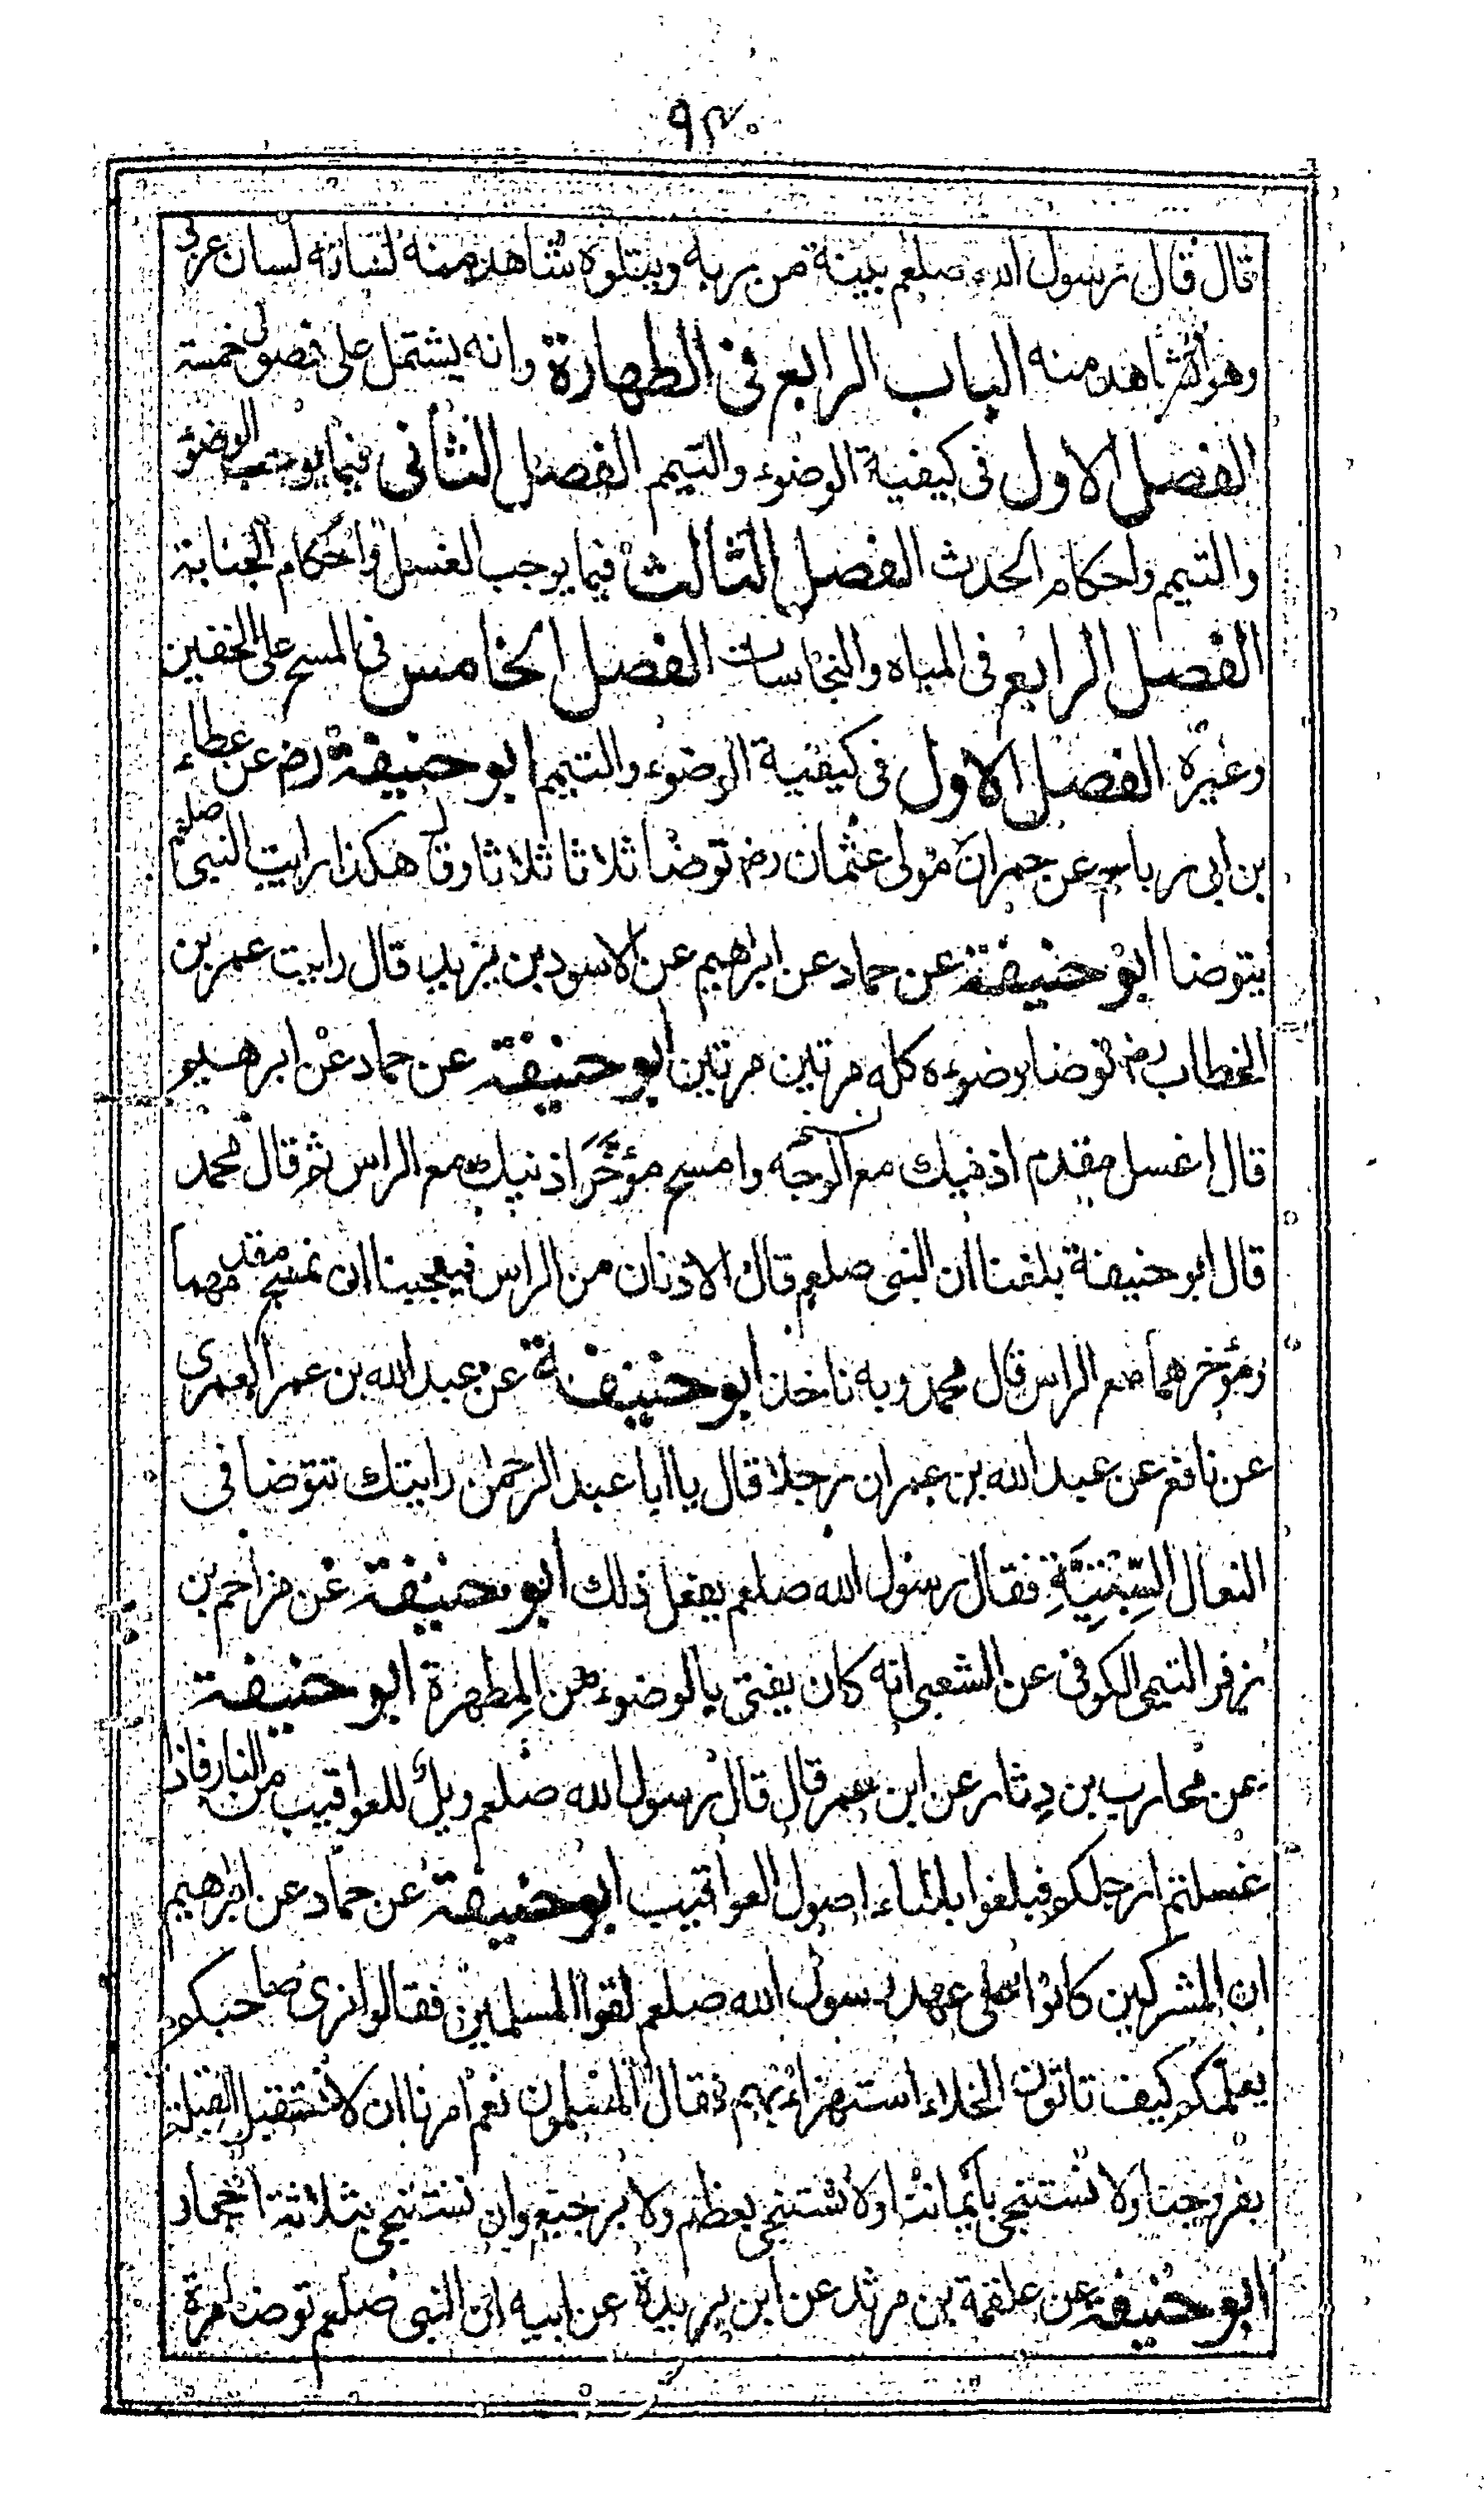 ٩٣
قال قال رسول الله صلعم بينة من ربه ويتلوه شاهد منه لسانه لسان عربي
وهو الشاهد منه الباب الرابع في الطهارة وانه يشتمل على فصول خمسة
الفصل الاول في كيفية الوضوء والتيمم الفصل الثاني فيما يوجب الوضؤ
والتيمم واحكام الحدث الفصل الثالث فيما يوجب الغسل واحكام الجنابة
الفصل الرابع في المياه والنجاسات الفصل الخامس في المسح على الخفين
وغيره الفصل الاول في كيفية الوضوء والتيمم ابو حنيفة رض عن عطاء
بن ابي رباح عن حمران مولى عثمان رض توضا ثلاثا ثلاثا وقال هكذا رايت النبي صلعم
يتوضا ابو حنيفة عن حماد عن ابراهيم عن الاسود بن يزيد قال رايت عمر بن
الخطاب رض توضا وضوءه كله مرتين مرتين ابو حنيفة عن حماد عن ابرهيم
قال اغسل مقدم اذنيك مع الوجه وامسح مؤخر اذنيك مع الراس ثم قال محمد
قال ابو حنيفة بلغنا ان النبي صلعم قال الاذنان من الراس فيعجبنا ان نمسح مقدمهما
ومؤخرهما مع الراس قال محمد وبه ناخذ ابو حنيفة عن عبد الله بن عمر العمري
عن نافع عن عبد الله بن عمر ان رجلا قال يا ابا عبد الرحمن رايتك تتوضا في
النعال السبتية فقال رسول الله صلعم يفعل ذلك ابو حنيفة عن مزاحم بن
زفر التيمي الكوفي عن الشعبي انه كان يفتي بالوضوء من المطهرة ابو حنيفة
عن محارب بن دثار عن ابن عمر قال قال رسول الله صلعم ويل للعواقيب من النار فاذا
غسلتم ارجلكم فبلغوا بالماء اصول العواقيب ابو حنيفة عن حماد عن ابراهيم
ان المشركين كانوا على عهد رسول الله صلعم لقوا المسلمين فقالوا نرى صاحبكم
يعلمكم كيف تاتون الخلاء استهزاء بهم فقال المسلمون نعم امرنا ان لا نستقبل القبلة
بفروجنا ولا نستنجي بايماننا ولا نستنجي بعظم ولا برجيع وان نستنجي بثلاثة احجار
ابو حنيفة عن علقمة بن مرثد عن ابن بريدة عن ابيه ان النبي صلعم توضا مرة